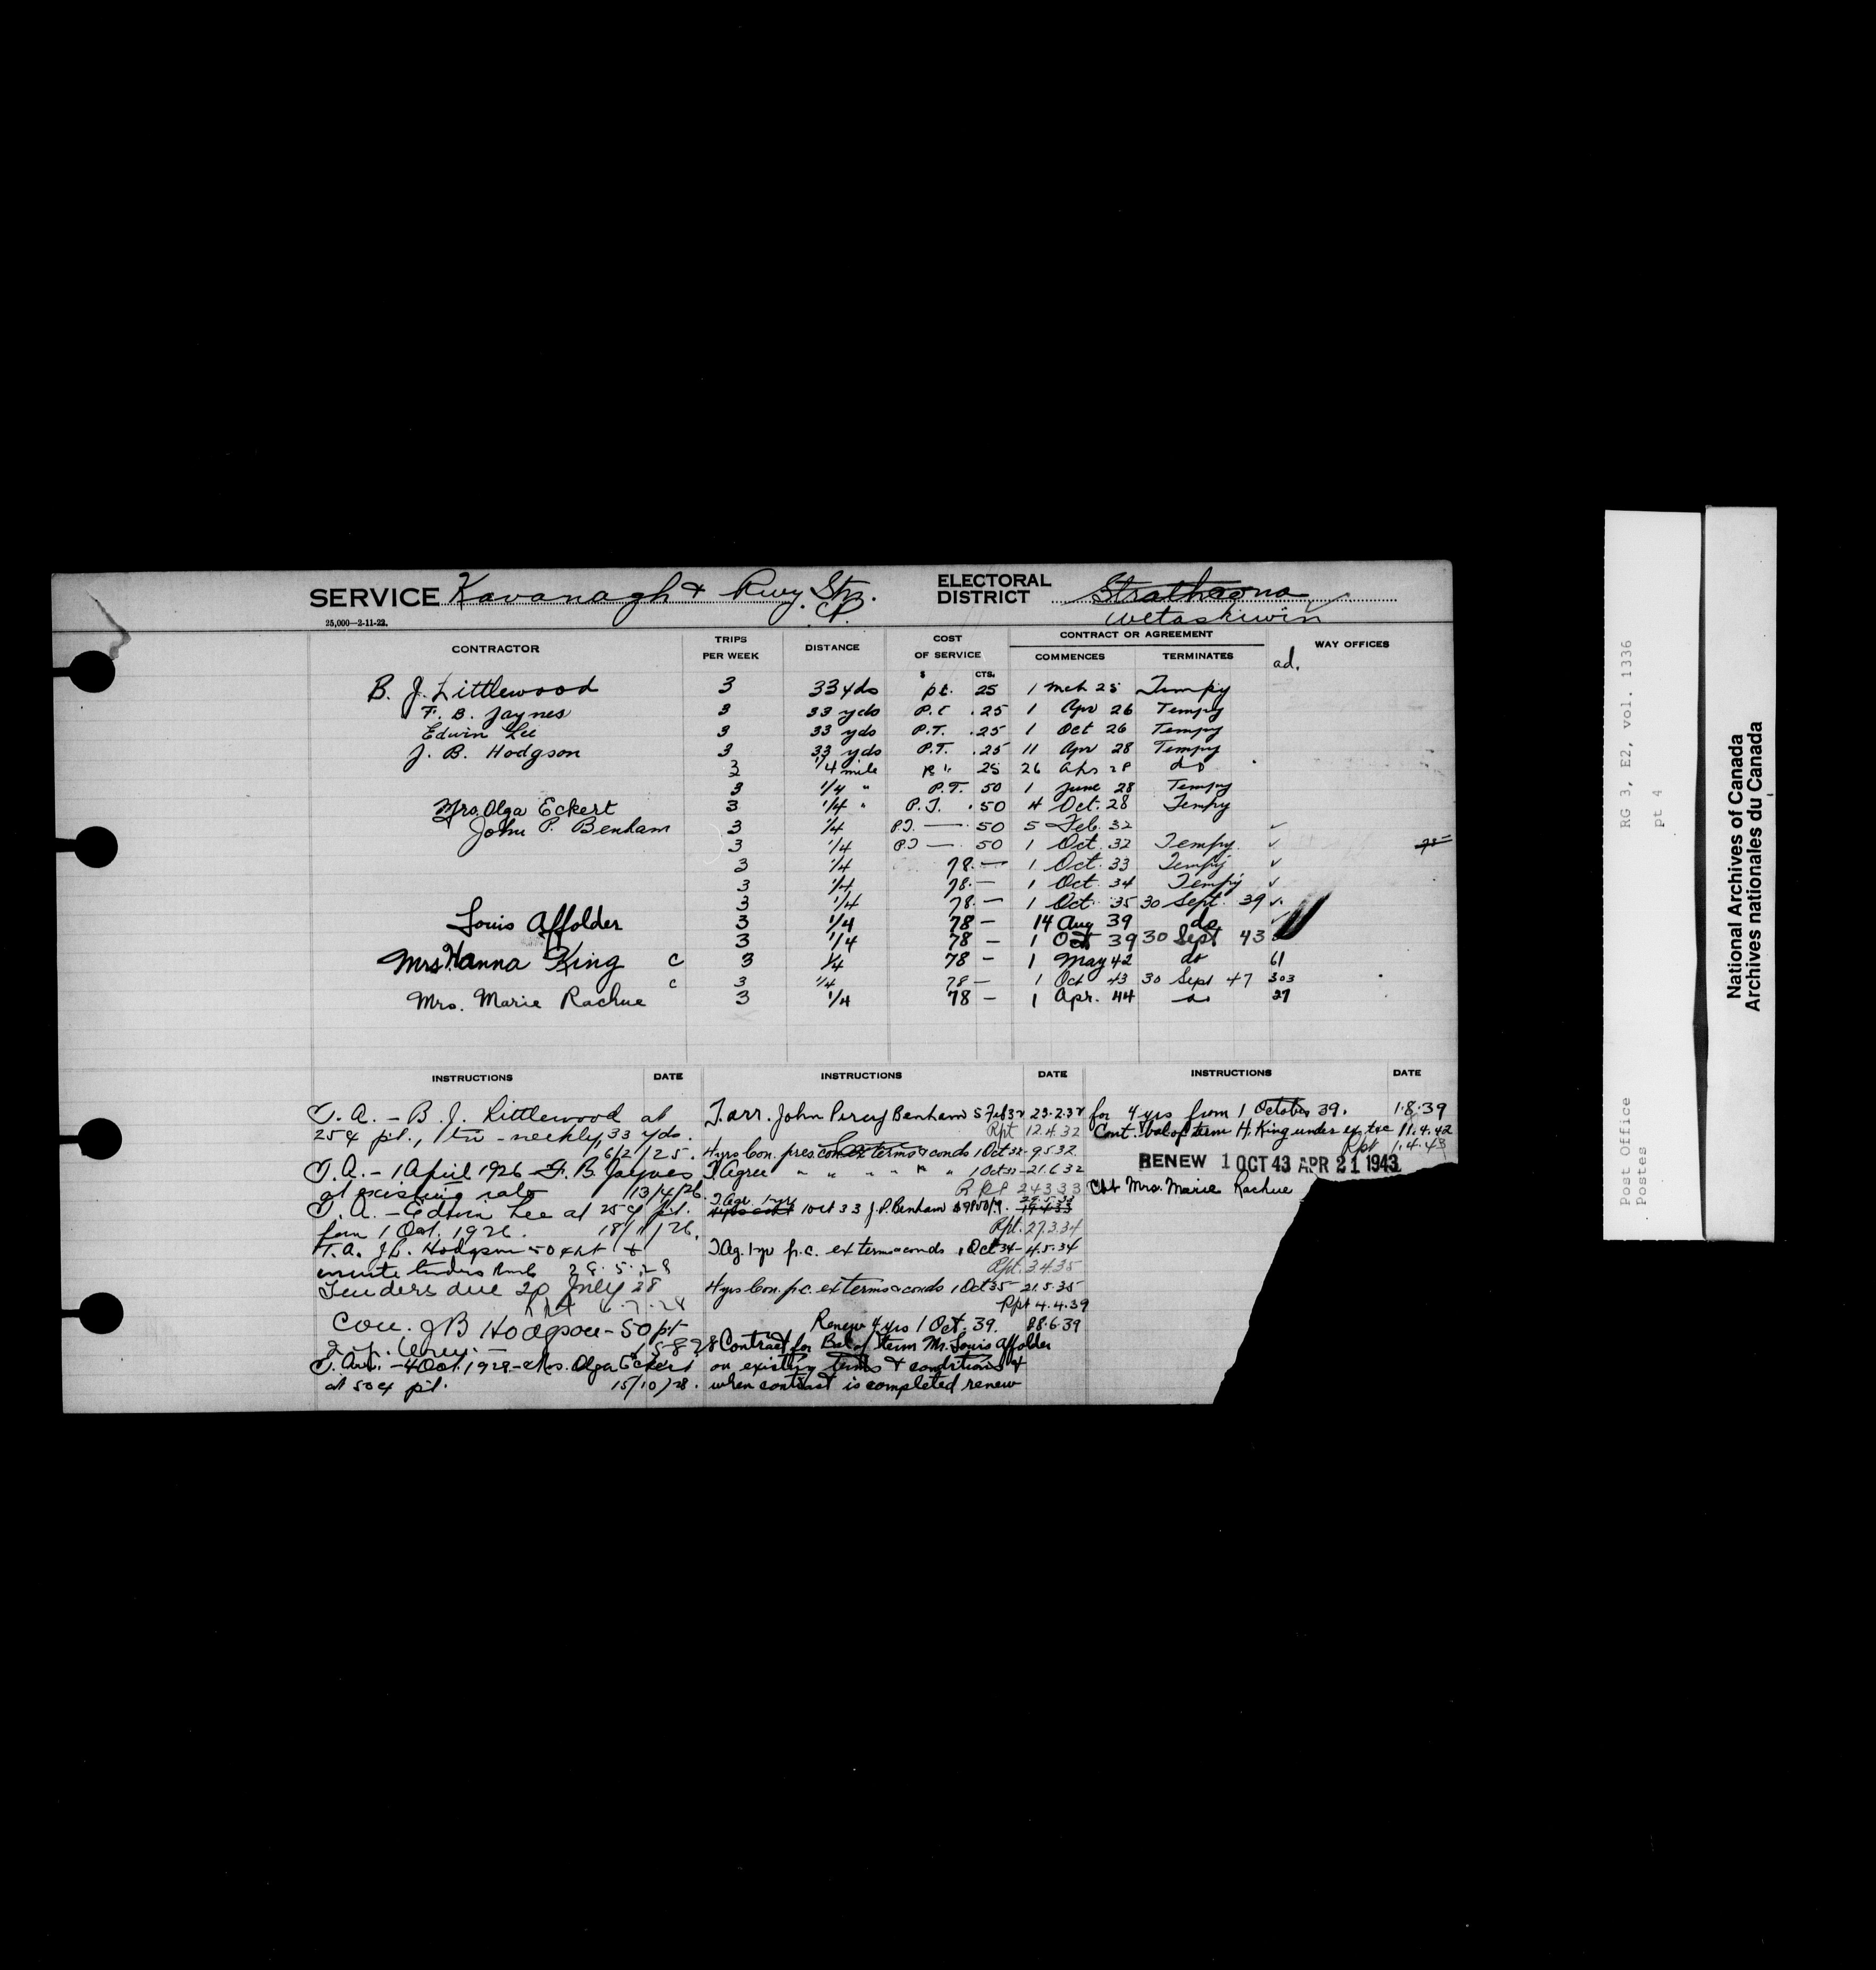 SERVICE Kavanagh & Rwy. Stn. ELECTORAL DISTRICT Strathcona
C.P. Wetaskiwin
25,000—2-11-22.
CONTRACTOR TRIPS PER WEEK DISTANCE COST OF SERVICE CONTRACT OR AGREEMENT COMMENCES TERMINATES WAY OFFICES
ad.
$ CTS.
B. J. Littlewood 3 33 yds pt. 25 1 Mch 25 Tempy
F. B. Jaynes 3 33 yds P.T. .25 1 Apr 26 Tempy
Edwin Lee 3 33 yds P.T. .25 1 Oct 26 Tempy
J. B. Hodgson 3 33 yds P.T. .25 11 Apr 28 Tempy
3 1/4 mile " 25 26 Apr 28 do
3 1/4 " P.T. 50 1 June 28 Tempy
Mrs. Olga Eckert 3 1/4 " P.T. .50 4 Oct. 28 Tempy
John P. Benham 3 1/4 P.T. — 50 5 Feb. 32 ✓
3 1/4 P.T. — 50 1 Oct. 32 Tempy. ✓
3 1/4 78.— 1 Oct. 33 Tempy ✓
3 1/4 78.— 1 Oct. 34 Tempy ✓
3 1/4 78.— 1 Oct. 35 30 Sept. 39 ✓
Louis Affolder 3 1/4 78 — 14 Aug 39 do ✓
3 1/4 78 — 1 Oct 39 30 Sept 43
Mrs. Hanna King c 3 1/4 78 — 1 May 42 do 61
c 3 1/4 78 — 1 Oct 43 30 Sept 47 303
Mrs. Marie Rachue 3 1/4 78 — 1 Apr. 44 do 27
INSTRUCTIONS DATE INSTRUCTIONS DATE INSTRUCTIONS DATE
T.A. — B. J. Littlewood at
25¢ pt., tri-weekly, 33 yds.
16/2/25.
T.A. — 1 April 1926 — F. B. Jaynes
at existing rate 13/4/26.
T.A. — Edwin Lee at 25¢ pt.
from 1 Oct. 1926. 18/11/26.
T.A. J.B. Hodgson 50¢ht &
invite tenders 28.5.28
Tenders due 20 July 28
Con. J B Hodgson — 50 pt
15-8-28
T. Arr. — 4 Oct. 1928 — Mrs. Olga Eckert
at 50¢ pt. 15/10/28.
T. arr. John Percy Benham 5 Feb 32 23.2.32
Rpt 12.4.32
4 yrs Con. pres. con ex terms & conds 1 Oct 32 - 9.5.32
T Agree " " " " " " 1 Oct 32 - 21.6.32
Rpt 24.3.33
T. Agr. 1 yr
1 Oct 33 J. P. Benham $78.00 19.4.33
Rpt. 27.3.34
T. Ag. 1 yr p.c. ex terms & conds 1 Oct 34 - 4.5.34
Rpt. 3.4.35
4 yrs Con. p.c. ex terms & conds 1 Oct 35 - 21.5.35
Rpt 4.4.39
Renew 4 yrs 1 Oct. 39. 28.6.39
Contract for Bal of term Mr. Louis Affolder
on existing terms & conditions &
when contract is completed renew
for 4 yrs from 1 October 39. 1.8.39
Cont. bal of term H. King under ex. t&c 11.4.42
Rpt 1.4.43
RENEW 1 OCT 43 APR 21 1943
Cbt Mrs. Marie Rachue
Post Office
Postes
RG 3, E2, vol. 1336
pt 4
National Archives of Canada
Archives nationales du Canada